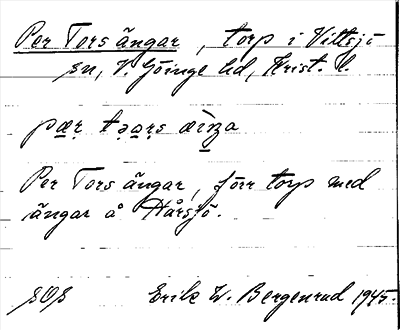 Per Tors ängar, torp i Vittsjö
sn, V. Göinge hd, Krist. l.
pæṛ təạṛs æ̀ŋa
Per Tors ängar, förr torp med
ängar å Hårsjö.
Erik W. Bergenrud 1945.